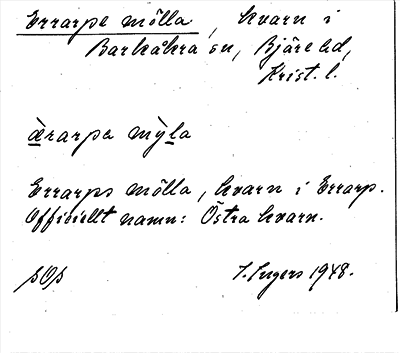 Errarpe mölla, kvarn i
Barkåkra sn, Bjäre hd,
Krist. l.
ærarpa mỳla
Errarps mölla, kvarn i Errarp.
Officiellt namn: Östra kvarn.
J. Ingers 1948.